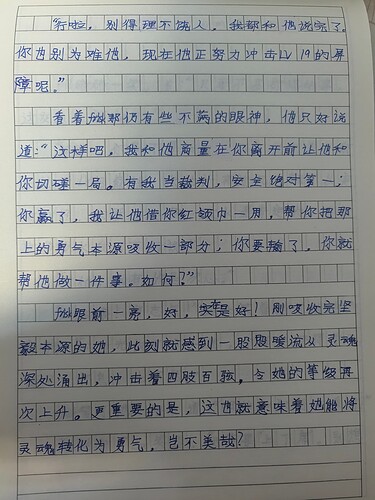 “行啦，别得理不饶人，我都和他说完了。
你也别为难他，现在他正努力冲击LV 19的屏
障呢。”
看着她那仍有些不满的眼神，他只好说
道：“这样吧，我和他商量在你离开前让他和
你切磋一局。有我当裁判，安全绝对第一；
你赢了，我让他借你红领巾一用，帮你把那
上的勇气本源吸收一部分；你要输了，你就
帮他做一件事，如何？”
她眼前一亮，好，实在是好！刚吸收完坚
毅本源的她，此刻就感到一股股暖流从灵魂
深处涌出，冲击着四肢百骸，令她的等级再
次上升。更重要的是，这也就意味着她能将
灵魂转化为勇气，岂不美哉？